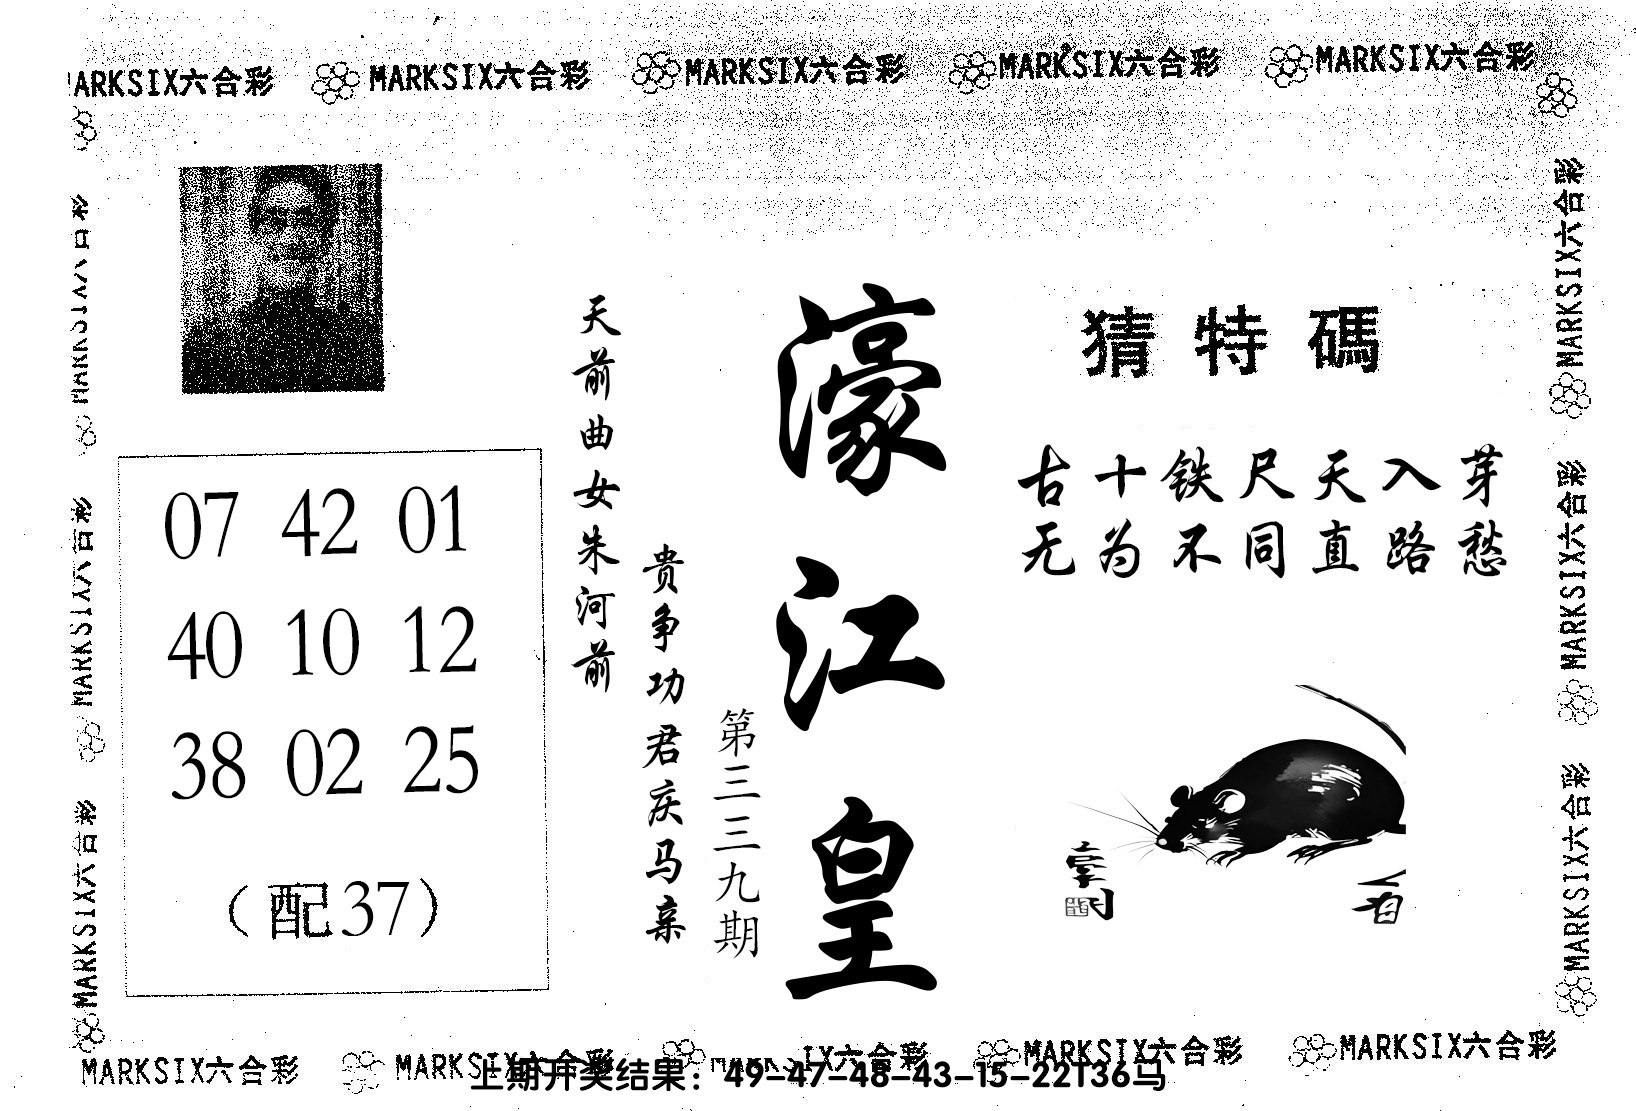 MARKSIX六合彩 MARKSIX六合彩 MARKSIX六合彩 MARKSIX六合彩 MARKSIX六合彩
MARKSIX六合彩 MARKSIX六合彩 MARKSIX六合彩
07 42 01
40 10 12
38 02 25
（配37）
天前曲女朱河前
贵争功君庆马亲
第三三九期
濠江皇
猜特碼
古十铁尺天入芽
无为不同直路愁
MARKSIX六合彩 MARKSIX六合彩 MARKSIX六合彩
MARKSIX六合彩 MARKSIX六合彩 MARKSIX六合彩 MARKSIX六合彩 MARKSIX六合彩
上期开奖结果：49-47-48-43-15-22T36马